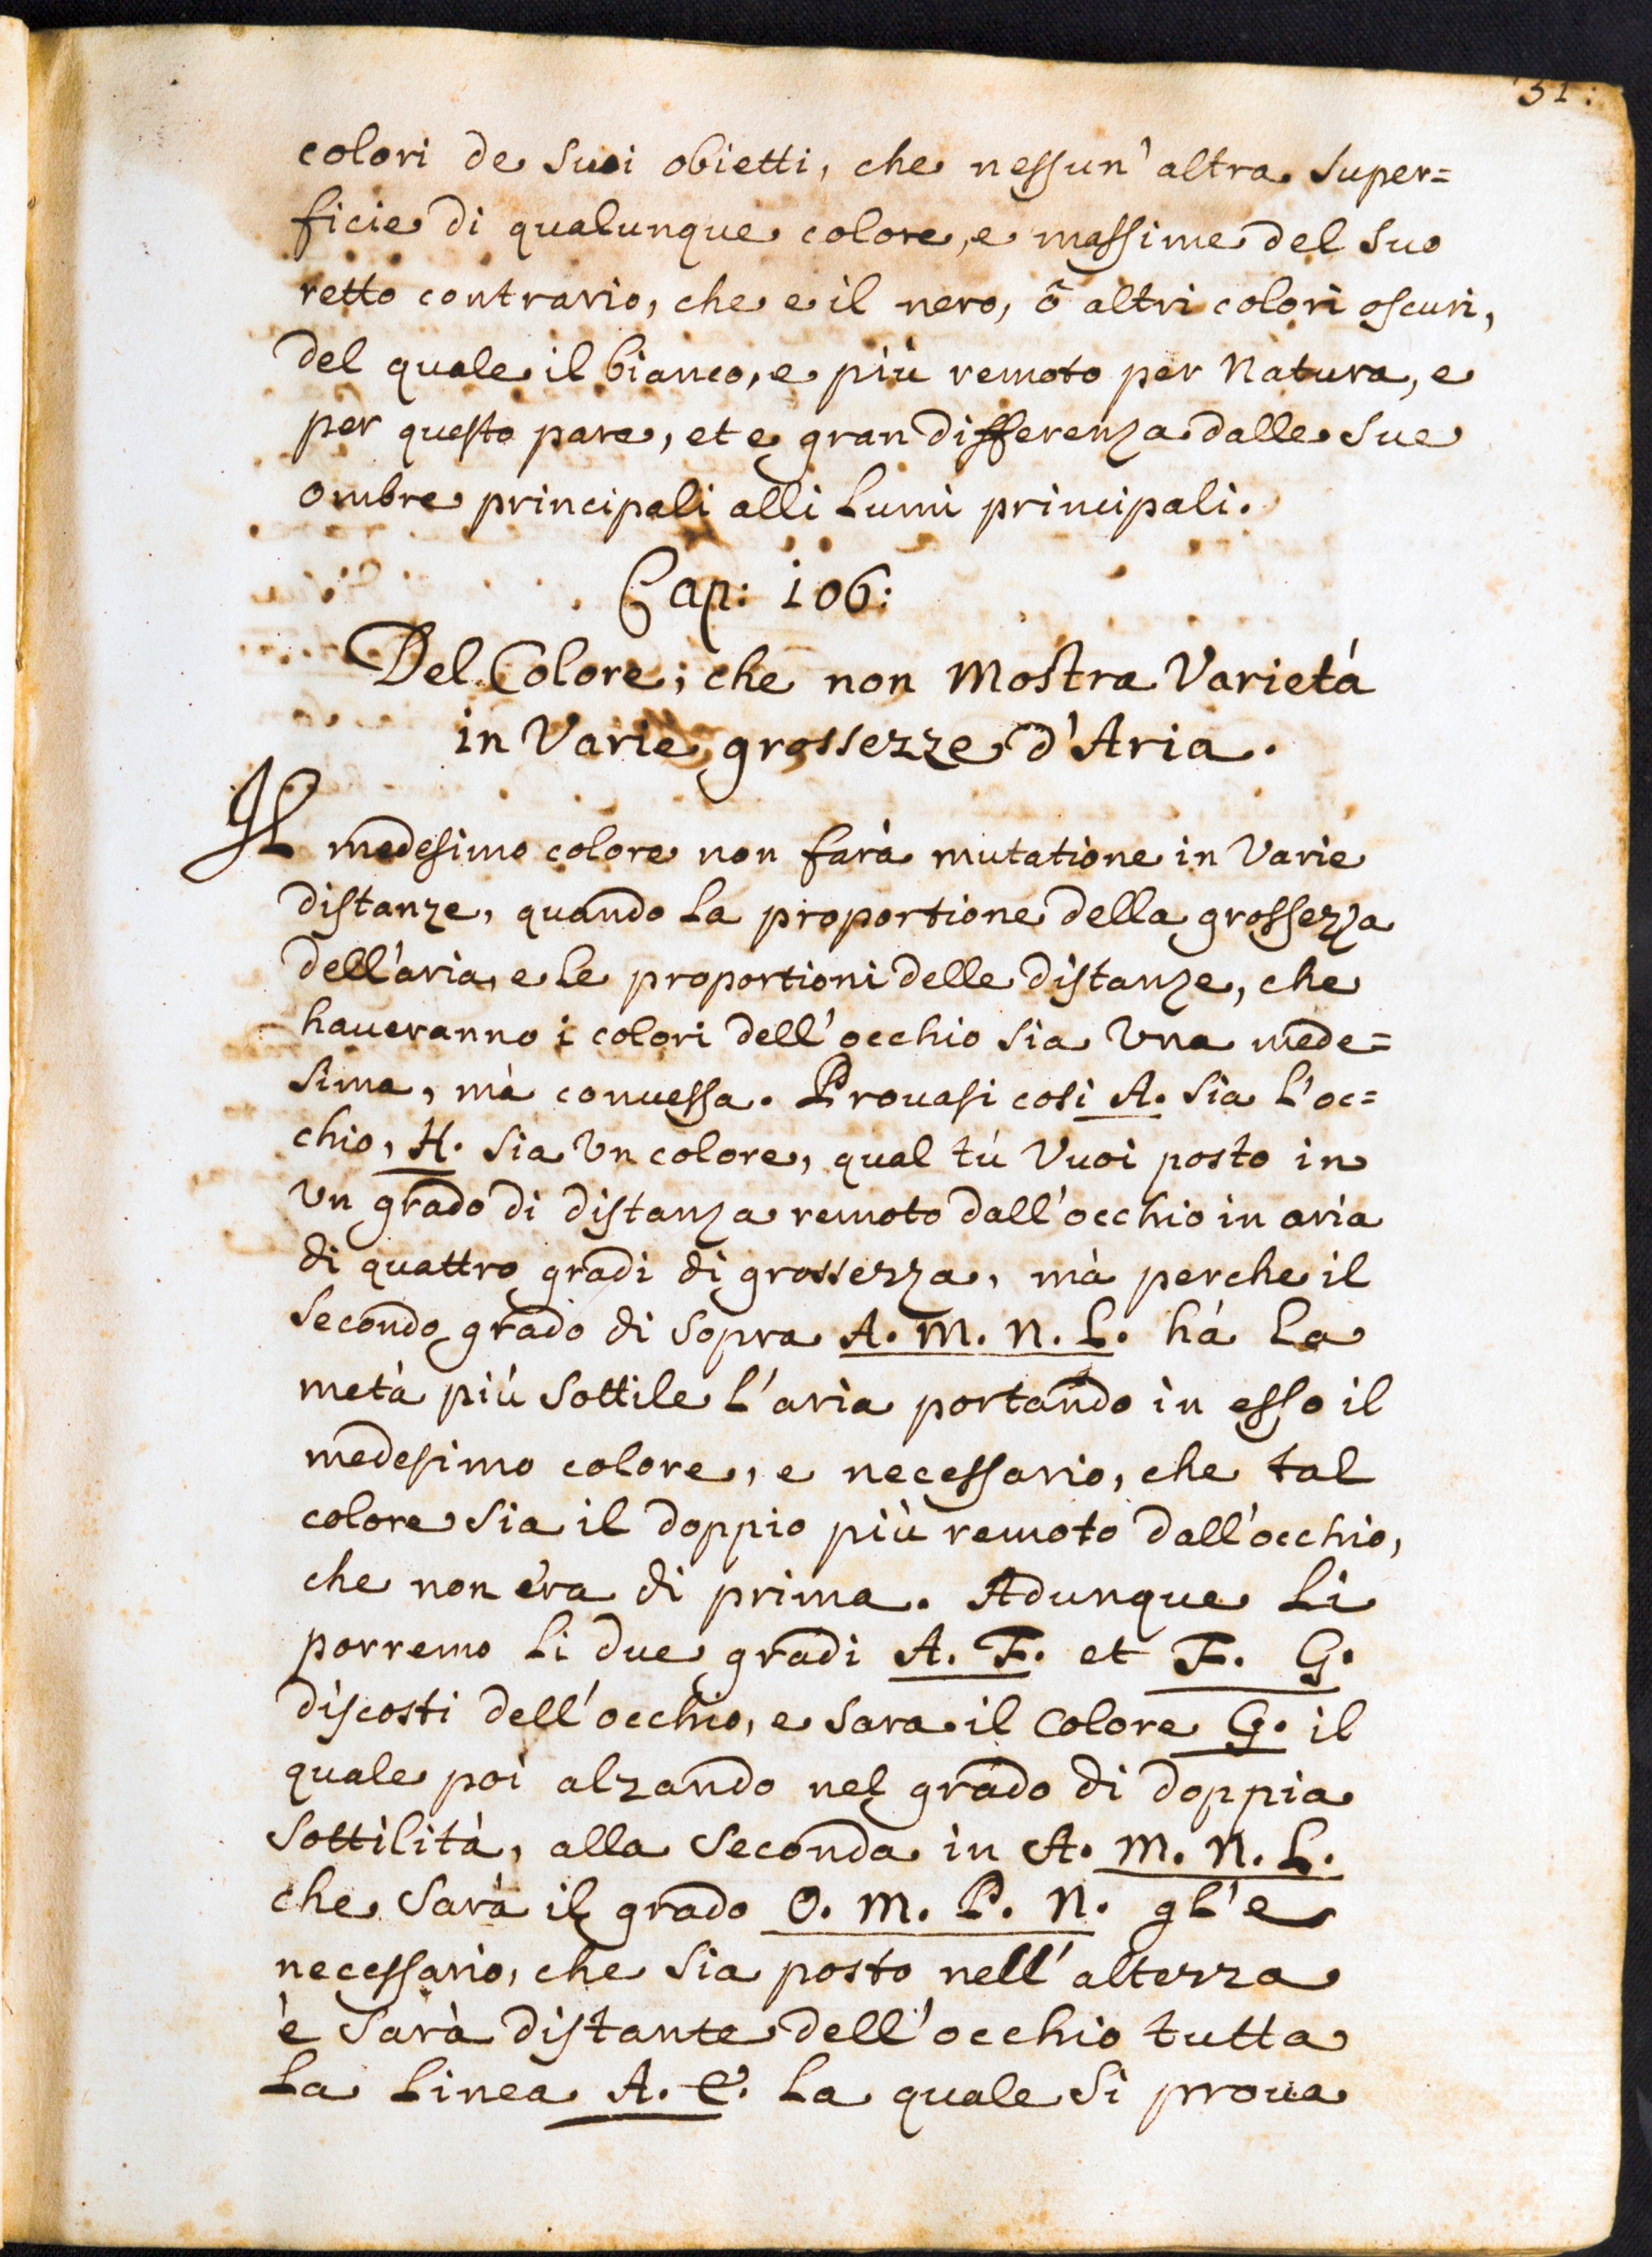 51:
colori de suoi obietti, che nessun' altra super=
ficie di qualunque colore, e massime del suo
retto contrario, che e il nero, ô altri colori oscuri,
del quale il bianco, e più remoto per Natura, e
per questo pare, et e gran differenza dalle sue
ombre principali alli Lumi principali.
Cap: 106:
Del Colore; che non Mostra Varietá
in Varie grossezze d'Aria.
Il medesimo colore non farà mutatione in Varie
distanze, quando La proportione della grossezza
dell'aria, e Le proportioni delle distanze, che
haueranno i colori dell'occhio sia Vna mede=
sima, mà conuessa. Prouasi così A. sia L'oc=
chio, H. sia Vn colore, qual tú Vuoi posto in
Vn grado di distanza remoto dall'occhio in aria
di quattro gradi di grossezza, mà perche il
secondo grado di sopra A. M. N. L. há La
metà più sottile L'aria portando in esso il
medesimo colore, e necessario, che tal
colore sia il doppio più remoto dall'occhio,
che non era di prima. Adunque Li
porremo Li due gradi A. F. et F. G.
discosti dell'occhio, e sara il Colore G. il
quale poi alzando nel grado di doppia
sottilità, alla seconda in A. M. N. L.
che sarà il grado O. M. P. N. gl'e
necessario, che sia posto nell'altezza
è sarà distante dell'occhio tutta
La Linea A. E. La quale si proua